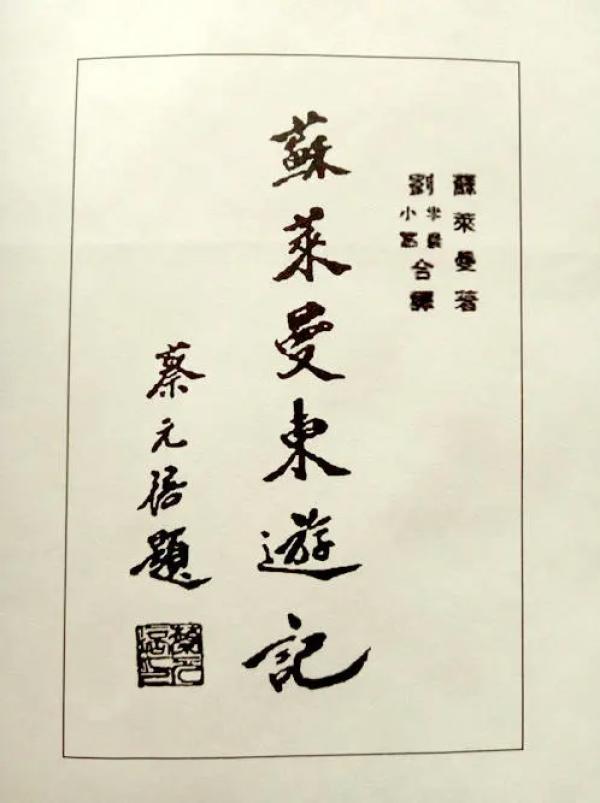 蘇萊曼著
劉半農小蕙合譯
蘇萊曼東遊記
蔡元培題
蔡元培印